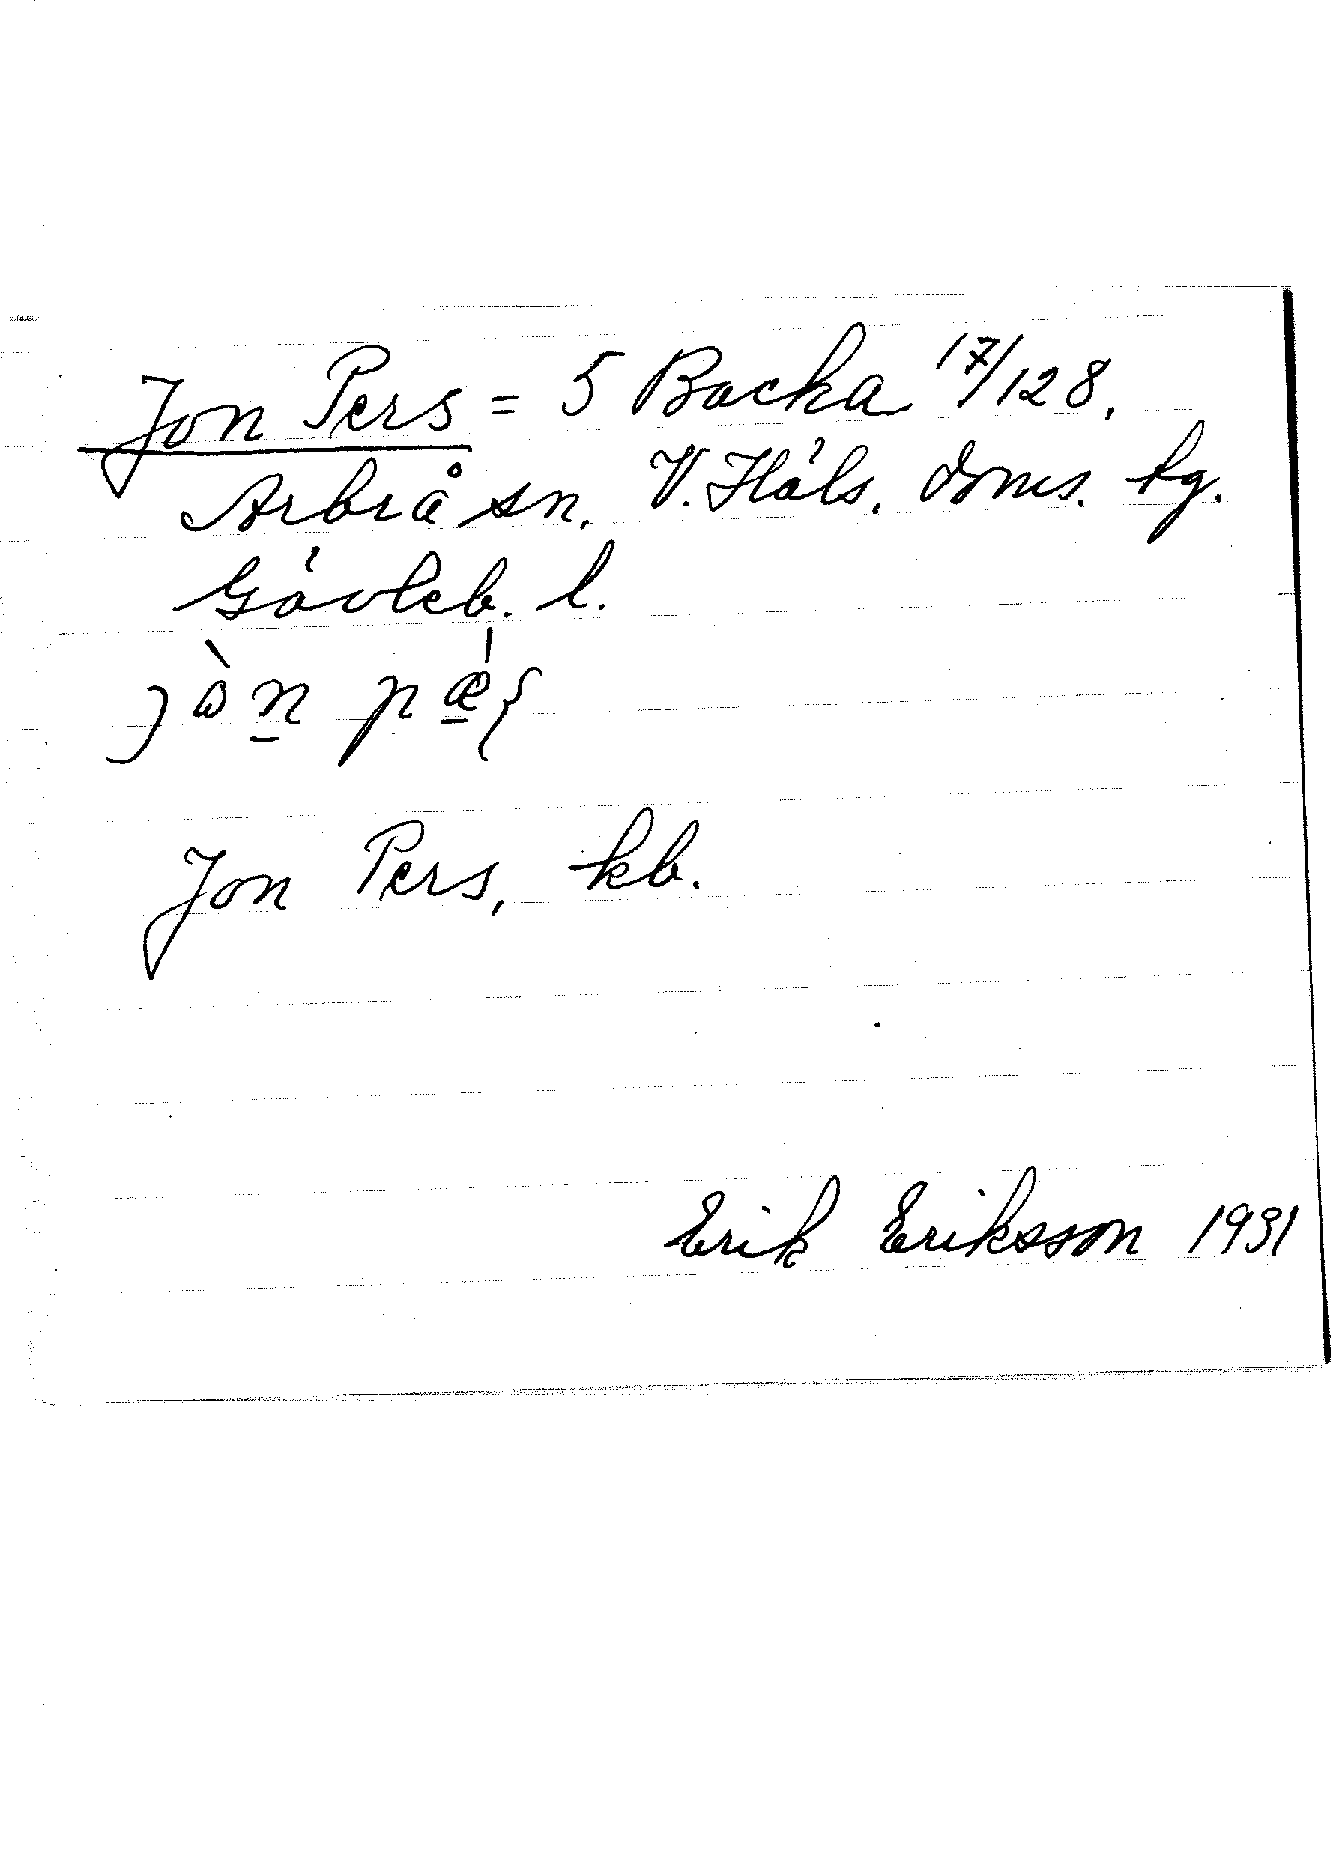 Jon Pers = 5 Backa 17/128.
Arbrå sn. V. Häls. doms. tg.
Gävleb. l.
Jon Pers, kb.
Erik Eriksson 1931